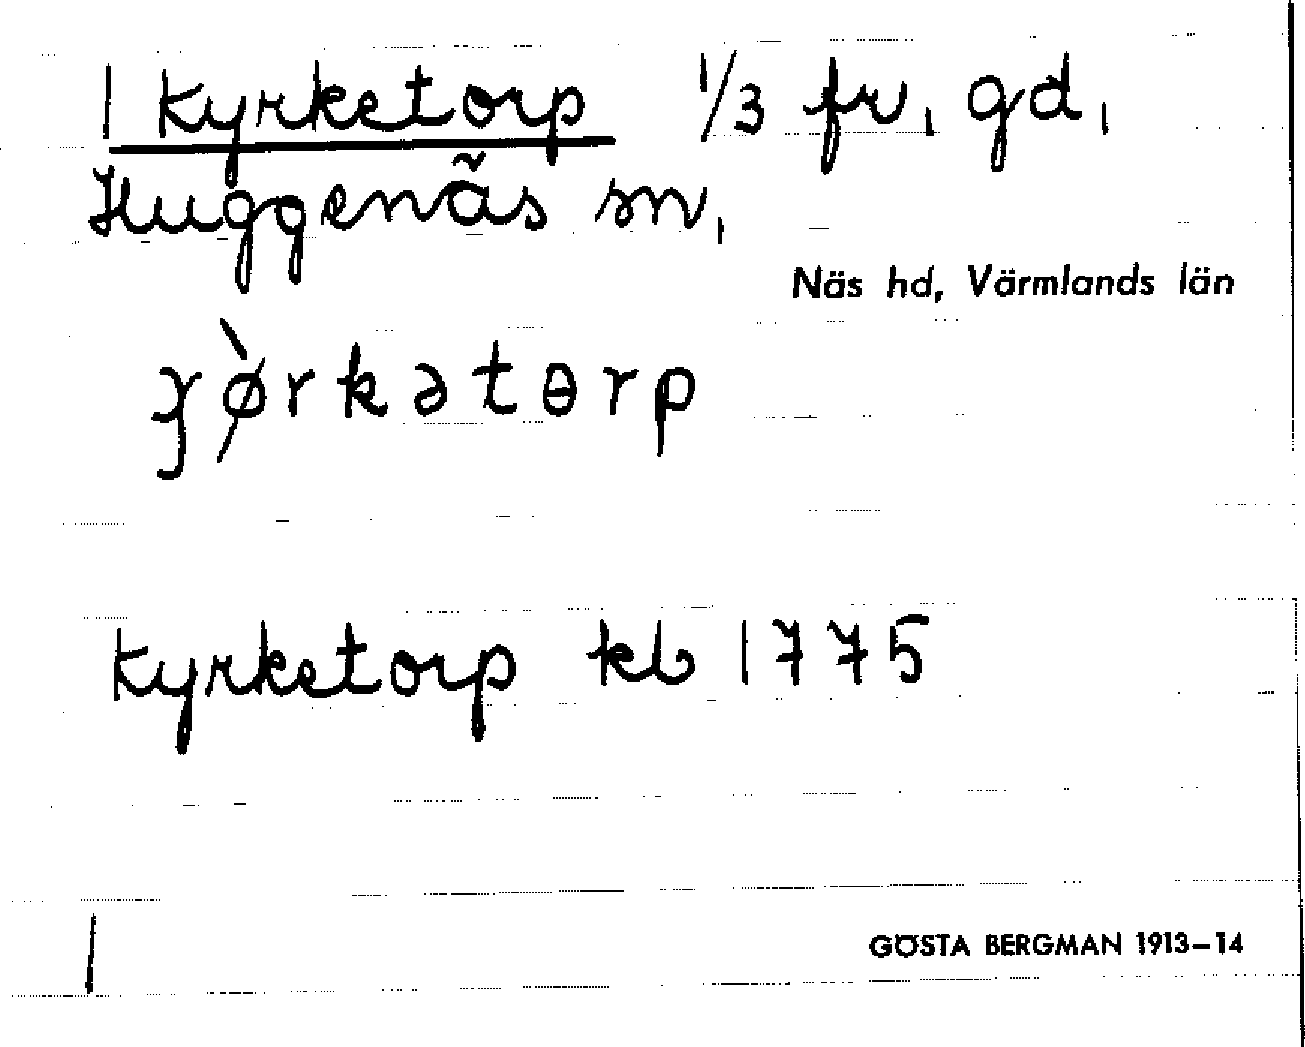 1 Kyrketorp 1/3 fr, gd,
Huggenäs sn,
Näs hd, Värmlands län
Kyrketorp kb 1775
GÖSTA BERGMAN 1913–14